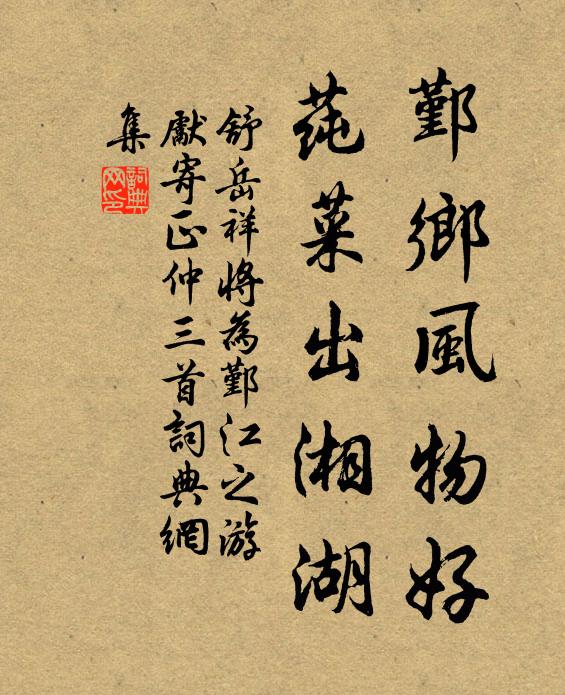 鄞鄉風物好
蒓菜出湘湖
舒岳祥將為鄞江之游
獻寄正仲三首詞典網
集
詞典網印